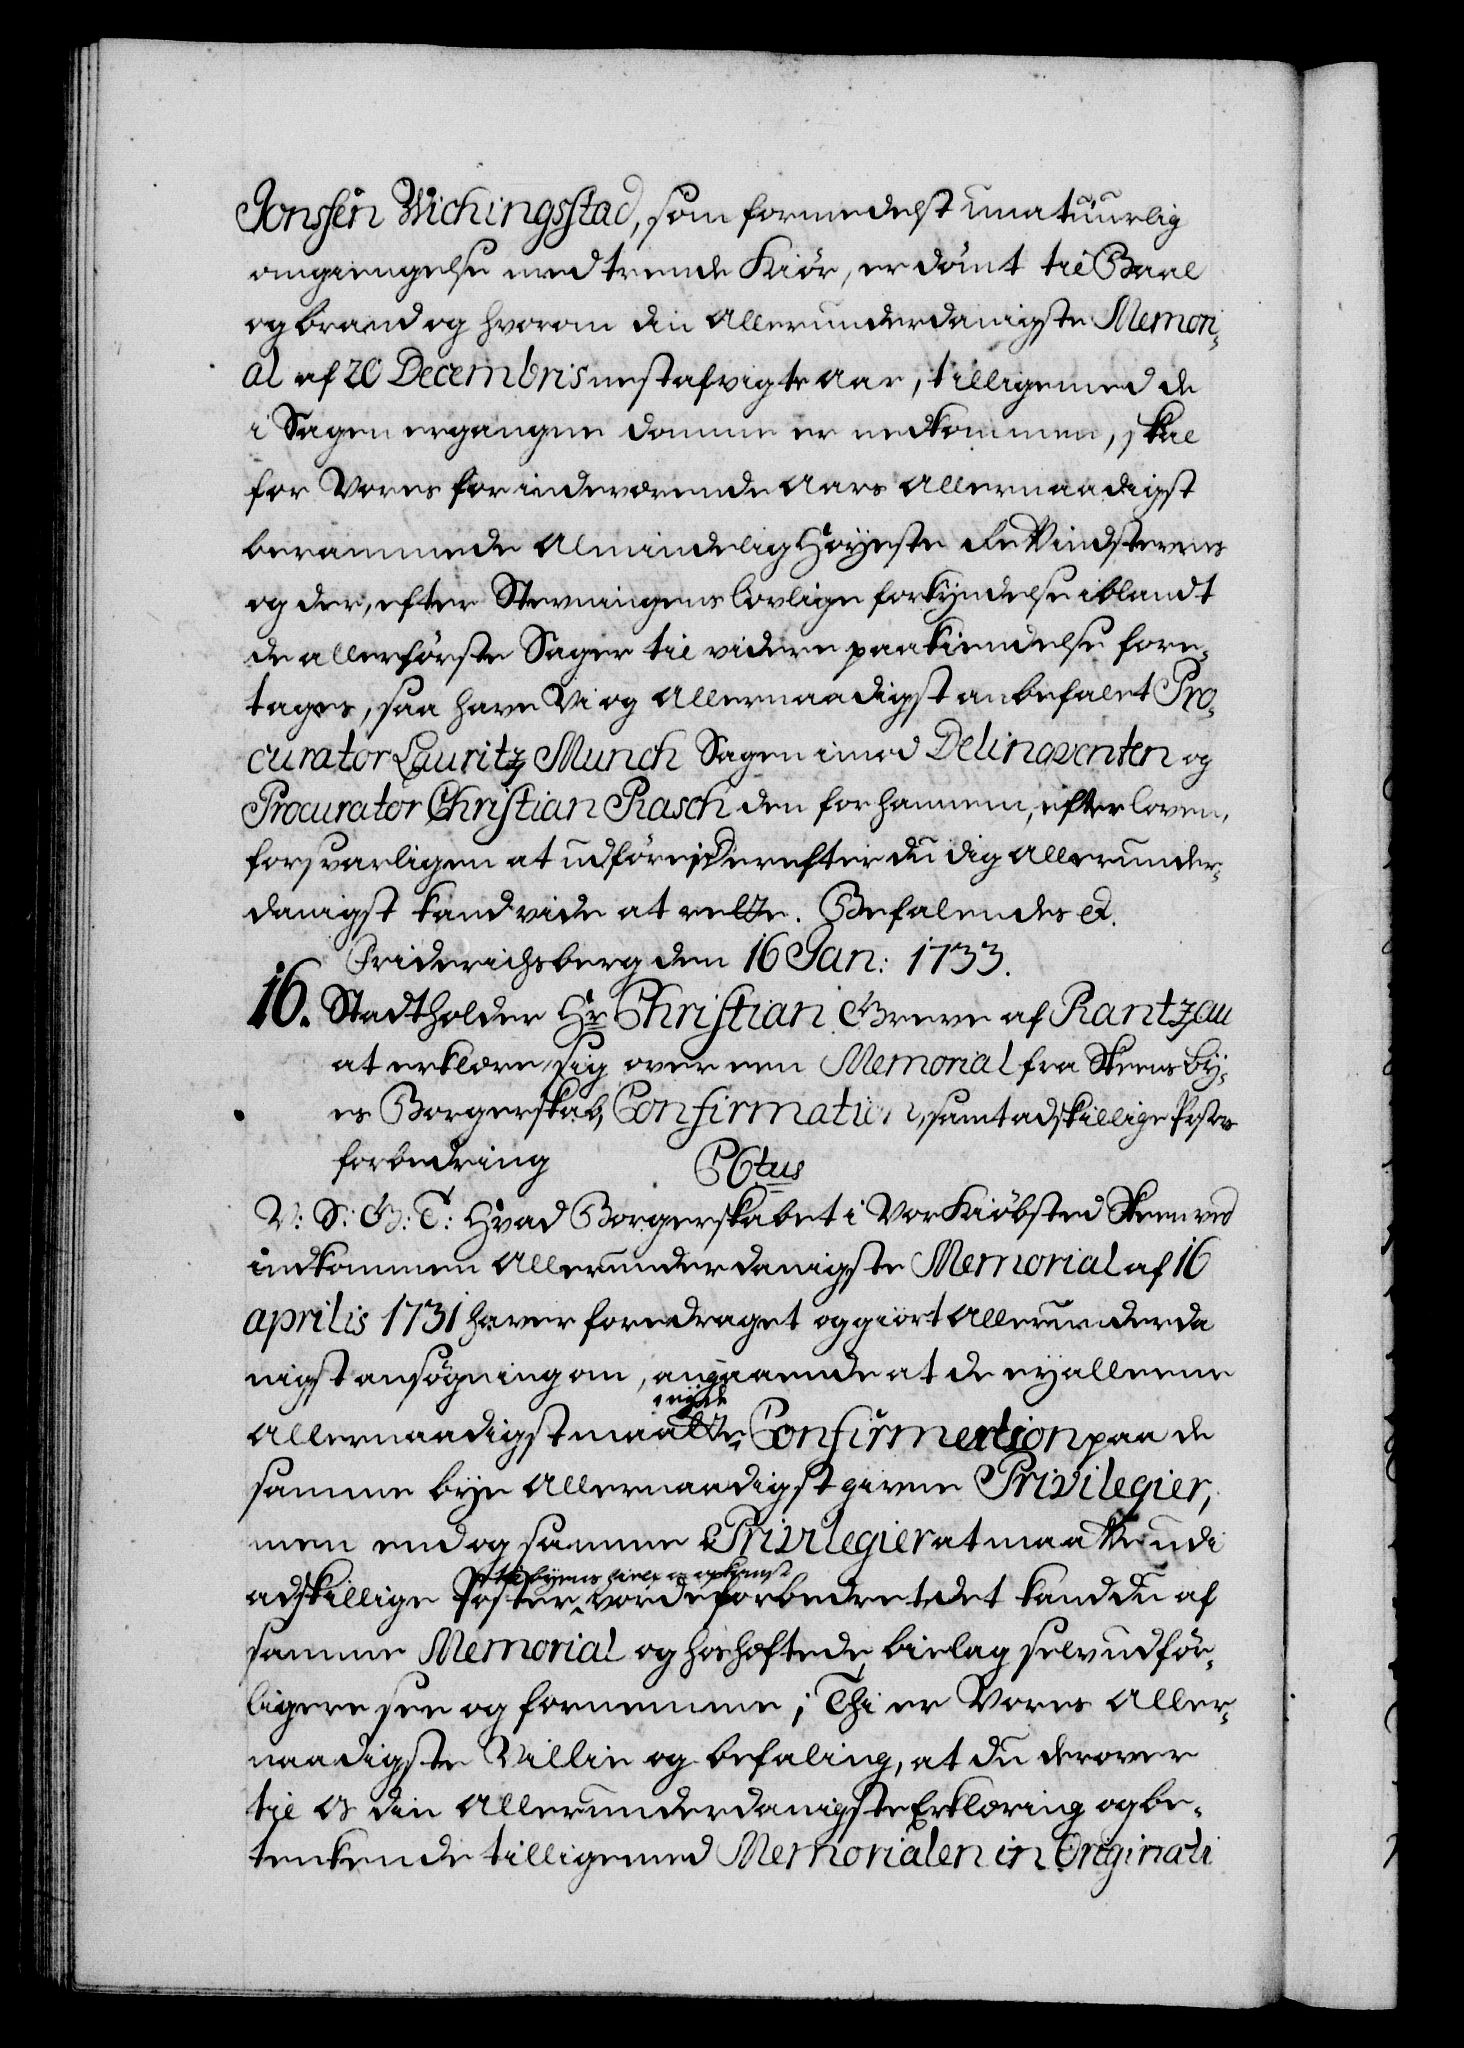 Jonssen Wichingsstad, som formedelst unatuurlig
omgiengelse med trende Kiör, er dömt til Baal
og brand og hvorom din allerunderdanigste Memori-
al af 20 Decembris nestafvigte aar, tilligemed de
i Sagen ergangne domme er nedkommen, skal
for Vores for indeværende aars allernaadigst
berammede almindelig Höyeste Rett indstevnes
og der, efter Stevningens lovlige forkyndelse iblandt
de allerförste Sager til videre paakiendelse fore-
tages, saa have Vi og allernaadigst anbefalet Pro-
curator Lauritz Munch Sagen imod Delinqventen og
Procurator Christian Rasch den for hannem, efter loven,
forsvarligen at udföre; Derefter du dig allerunder-
danigst kand vide at rette. Befalendes etc.
Friderichsberg den 16 Jan: 1733.
16. Stadtholder Hr Christian Greve af Rantzau
at erklære sig over een Memorial fra Skeens by-
es Borgerskab, Confirmation, samt adskillige Posters
forbedring PCtus
V: S: G: T: Hvad Borgerskabet i Vor Kiöbsted Skeen ved
indkommen allerunderdanigste Memorial af 16
aprilis 1731 haver foredraget og giort allerunderda
nigst ansögning om, angaaende at de ey alleene
nyde
allernaadigst maatte Confirmation paa de
samme bye allernaadigst givne Privilegier,
men endog samme Privilegier at maatte udi
til byens
adskillige Poster vorde forbedret det kand du af
samme Memorial og hoshæftede bielag selv udför-
ligere see og fornemme; Thi er Vores aller-
naadigste Villie og befaling, at du derover
til Os din allerunderdanigste Erklæring og be-
tenkende tilligemed Memorialen in Originali